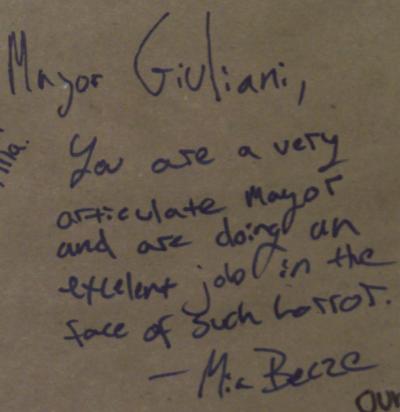 Mayor Giuliani,
You are a very
articulate mayor
and are doing an
excelent job in the
face of such horror.
— Mia
our